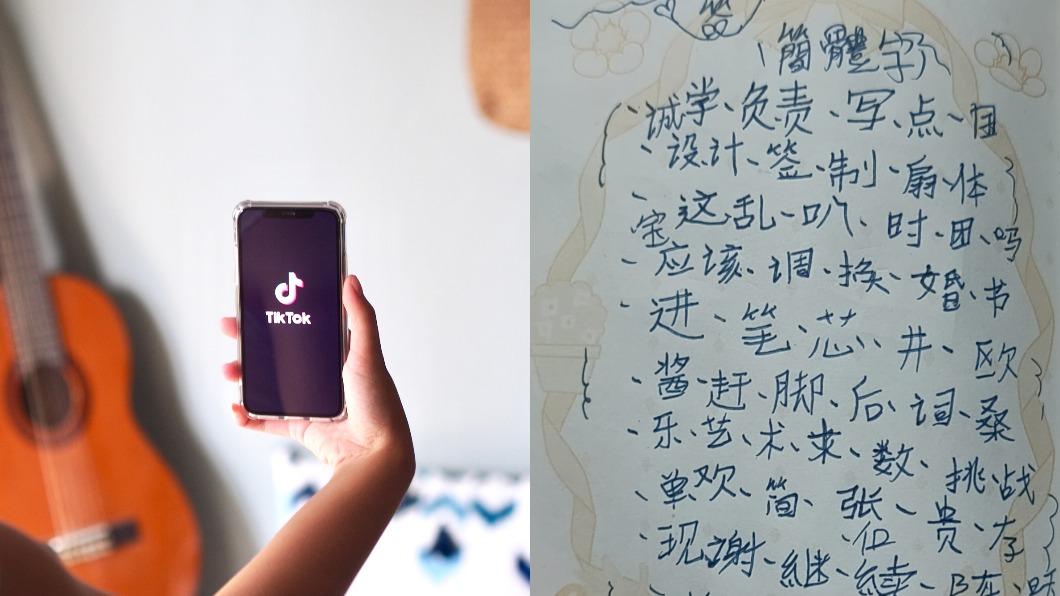 TikTok
簡體字
诚学、负责、写、点、
、设计、签、制、扇、体
、宝这乱、叭、时、团、吗
、应该、调、换、婚、书
、进、笔、芯、井、欧
、酱、赶、脚、后、词、桑
、乐、艺、术、来、数、挑战
、单、欢、简、张、位、贵、存
、现、谢、继、续、陈、